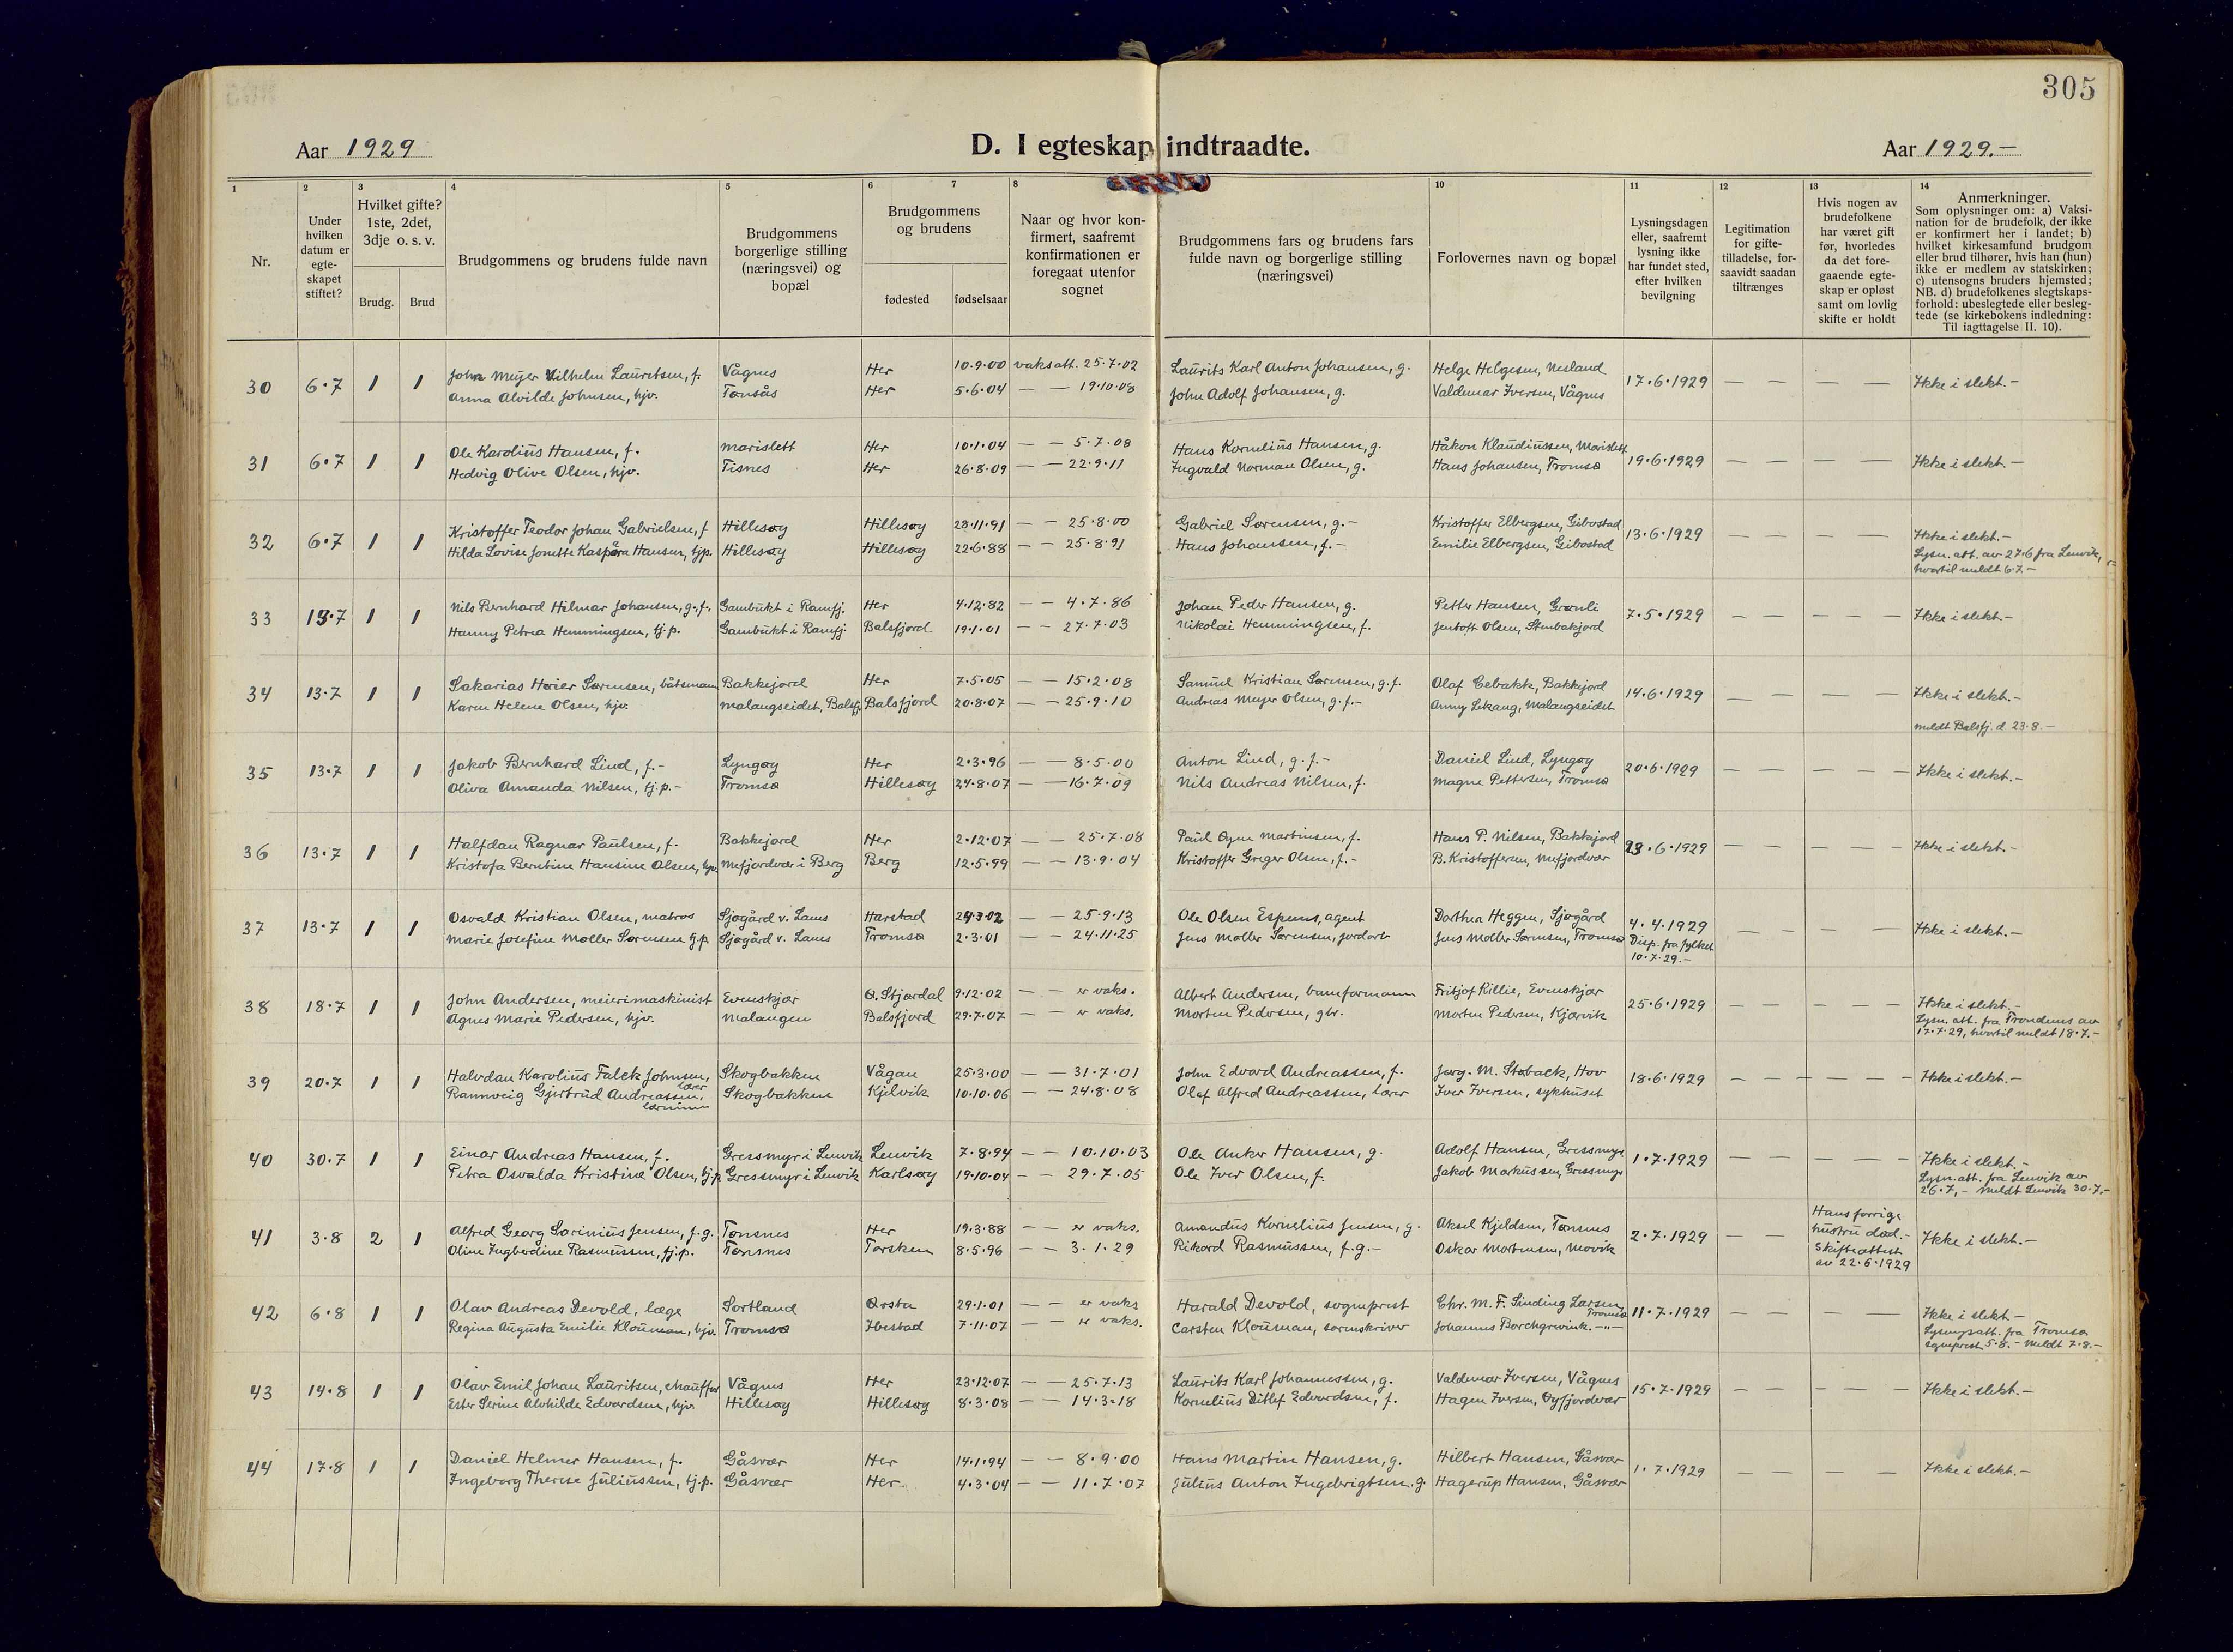 305
Aar 1929
D. I egteskap indtraadte.
Aar 1929.-
1 2 3 4 5 6 7 8 10 11 12 13 14
Nr.
Under hvilken datum er egte-skapet stiftet?
Hvilket gifte? 1ste, 2det, 3dje o. s. v.
Brudg. Brud
Brudgommens og brudens fulde navn
Brudgommens borgerlige stilling (næringsvei) og bopæl
Brudgommens og brudens
fødested fødselsaar
Naar og hvor kon-firmert, saafremt konfirmationen er foregaat utenfor sognet
Brudgommens fars og brudens fars fulde navn og borgerlige stilling (næringsvei)
Forlovernes navn og bopæl
Lysningsdagen eller, saafremt lysning ikke har fundet sted, efter hvilken bevilgning
Legitimation for gifte-tilladelse, for-saavidt saadan tiltrænges
Hvis nogen av brudefolkene har været gift før, hvorledes da det fore-gaaende egte-skap er opløst samt om lovlig skifte er holdt
Anmerkninger.
Som oplysninger om: a) Vaksi-nation for de brudefolk, der ikke er konfirmert her i landet; b) hvilket kirkesamfund brudgom eller brud tilhører, hvis han (hun) ikke er medlem av statskirken; c) utensogns bruders hjemsted; NB. d) brudefolkenes slegtskaps-forhold: ubeslegtede eller besleg-tede (se kirkebokens indledning: Til iagttagelse II. 10).
30 6.7 1 1 John Meyer Vilhelm Lauritsen, f. Vågnes Her 10.9.00 vaksatt. 25.7.02 Laurits Karl Anton Johansen, g. Helge Helgesen, Nesland 17.6.1929 — — — — Ikke i slekt.-
Anna Alvilde Johnsen, hjv. Tønsås Her 5.6.04 — — 19.10.08 John Adolf Johansen, g. Valdemar Iversen, Vågnes
31 6.7 1 1 Ole Karolius Hansen, f. Marislett Her 10.1.04 — — 5.7.08 Hans Kornelius Hansen, g. Håkon Klaudiussen, Marislett 19.6.1929 — — — — Ikke i slekt.-
Hedvig Olive Olsen, hjv. Tisnes Her 26.8.09 — — 22.9.11 Ingvald Norman Olsen, g. Hans Johansen, Tromsø
32 6.7 1 1 Kristoffer Teodor Johan Gabrielsen, f Hillesøy Hillesøy 28.11.91 — — 25.8.00 Gabriel Sørensen, g.- Kristoffer Elbergsen, Gibostad 13.6.1929 — — — — Ikke i slekt.-
Hilda Lovise Jonette Kaspara Hansen, tjp. Hillesøy Hillesøy 22.6.88 — — 25.8.91 Hans Johansen, f.- Emilie Elbergsen, Gibostad
Lysn. att. av 27.6 fra Lenvik,
hvortil meldt 6.7.-
33 13.7 1 1 Nils Bernhard Hilmar Johansen, g.f. Gambukt i Ramfj. Her 4.12.82 — — 4.7.86 Johan Peder Hansen, g. Petter Hansen, Grønli 7.5.1929 — — — — Ikke i slekt.-
Hanny Petrea Hemmingsen, tj.p. Gambukt i Ramfj. Balsfjord 19.1.01 — — 27.7.03 Nikolai Hemmingsen, f. Jentoft Olsen, Stenbakjord
34 13.7 1 1 Sakarias Høier Sørensen, båtsmann Bakkejord Her 7.5.05 — — 15.2.08 Samuel Kristian Sørensen, g.f. Olaf Ebbakk, Bakkejord 14.6.1929 — — — — Ikke i slekt.-
Karen Helene Olsen, hjv. Malangseidet, Balsfj. Balsfjord 20.8.07 — — 25.9.10 Andreas Meyer Olsen, g.f.- Anny Lekang, Malangseidet
meldt Balsfj. d. 23.8.-
35 13.7 1 1 Jakob Bernhard Lind, f.- Lyngøy Her 2.3.96 — — 8.5.00 Anton Lind, g.f.- Daniel Lind, Lyngøy 20.6.1929 — — — — Ikke i slekt.-
Oliva Amanda Nilsen, tj.p.- Tromsø Hillesøy 24.8.07 — — 16.7.09 Nils Andreas Nilsen, f. Magne Pettersen, Tromsø
36 13.7 1 1 Halfdan Ragnar Paulsen, f. Bakkejord Her 2.12.07 — — 25.7.08 Paul Martinsen, f. Hans P. Nilsen, Bakkejord 23.6.1929 — — — — Ikke i slekt.-
Kristofa Berntine Hansine Olsen, hjv. Mefjordvær i Berg Berg 12.5.99 — — 13.9.04 Kristoffer Greger Olsen, f.- B. Kristoffersen, Mefjordvær
37 13.7 1 1 Osvald Kristian Olsen, matros Sjøgård v. Lanes Harstad 24.3.02 — — 25.9.13 Ole Olsen Espenes, agent Dorthea Heggen, Sjøgård 4.4.1929 — — — — Ikke i slekt.-
Marie Josefine Møller Sørensen tj.p. Sjøgård v. Lanes Tromsø 2.3.01 — — 24.11.25 Jens Møller Sørensen, jordarb Jens Møller Sørensen, Tromsø Disp. fra fylket
10.7.29.-
38 18.7 1 1 John Andersen, meierimaskinist Evenskjær Ø. Stjørdal 9.12.02 — — er vaks. Albert Andersen, baneformann Fritjof Killie, Evenskjær 25.6.1929 — — — — Ikke i slekt.-
Agnes Marie Pedersen, hjv. Malangen Balsfjord 29.7.07 — — er vaks. Morten Pedersen, gbr. Morten Pedersen, Kjærvik
Lysn. att. fra Trondenes av
17.7.29, hvortil meldt 18.7.-
39 20.7 1 1 Halvdan Karolius Falck Johnsen, lærer Skogbakken Vågan 25.3.00 — — 31.7.01 John Edvard Andreassen, f. Jørg. M. Støback, Hov 18.6.1929 — — — — Ikke i slekt.-
Rannveig Gjertrud Andreassen, lærerinne Skogbakken Kjelvik 10.10.06 — — 24.8.08 Olaf Alfred Andreassen, lærer Iver Iversen, sykhuset
40 30.7 1 1 Einar Andreas Hansen, f. Gressmyr i Lenvik Lenvik 7.8.94 — — 10.10.03 Ole Anker Hansen, g. Adolf Hansen, Gressmyr 1.7.1929 — — — — Ikke i slekt.-
Petra Osvalda Kristine Olsen, tj.p. Gressmyr i Lenvik Karlsøy 19.10.04 — — 29.7.05 Ole Iver Olsen, f. Jakob Markussen, Gressmyr
Lysn. att. fra Lenvik av
26.7,- meldt Lenvik 30.7.-
41 3.8 2 1 Alfred Georg Sørinius Jensen, f.g. Tønsnes Her 19.3.88 — — er vaks. Amandus Kornelius Jensen, g. Aksel Kjeldsen, Tønsnes 2.7.1929 — — Hans forrige hustru død.- Skifteattest av 22.6.1929 Ikke i slekt.-
Oline Ingberdine Rasmussen, tj.p. Tønsnes Torsken 8.5.96 — — 3.1.29 Rikard Rasmussen, f.g.- Oskar Mortensen, Movik
42 6.8 1 1 Olav Andreas Devold, læge Sortland Ørsta 29.1.01 — — er vaks Harald Devold, sogneprest Chr. M. F. Sinding Larsen, Tromsø 11.7.1929 — — — — Ikke i slekt.-
Regina Augusta Emilie Klouman, hjv. Tromsø Ibestad 7.11.07 — — er vaks. Carsten Klouman, sorenskriver Johannes Borchgrevink. -"-
Lysningsatt. fra Tromsø
sogneprest 5.8.- Meldt 7.8.-
43 14.8 1 1 Olav Emil Johan Lauritsen, chauffør Vågnes Her 23.12.07 — — 25.7.13 Laurits Karl Johannessen, g. Valdemar Iversen, Vågnes 15.7.1929 — — — — Ikke i slekt.-
Ester Serine Alvhilde Edvardsen, hjv. Hillesøy Hillesøy 8.3.08 — — 14.3.18 Kornelius Ditlef Edvardsen, f. Hagen Iversen, Øyfjordvær
44 17.8 1 1 Daniel Helmer Hansen, f. Gåsvær Her 14.1.94 — — 8.9.00 Hans Martin Hansen, g. Hilbert Hansen, Gåsvær 1.7.1929 — — — — Ikke i slekt.-
Ingeborg Therese Juliussen, tj.p. Gåsvær Her. 4.3.04 — — 11.7.07 Julius Anton Ingebrigtsen. g. Hagerup Hansen, Gåsvær